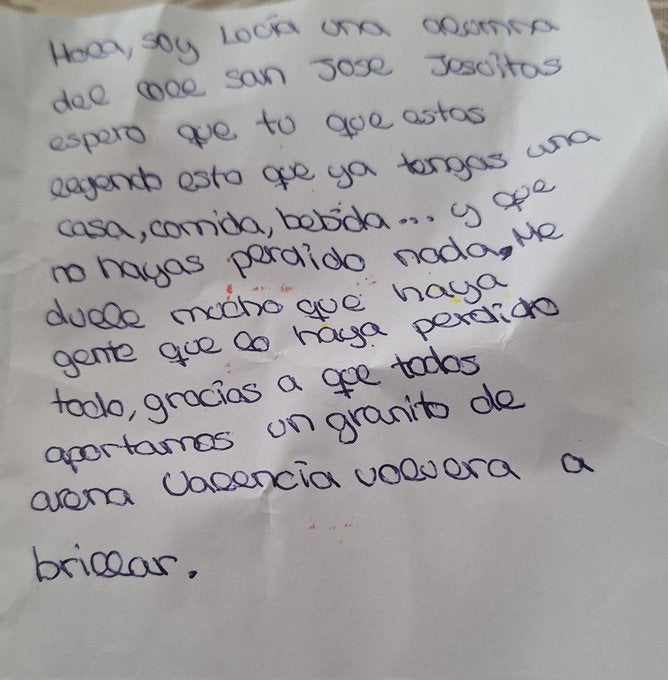 Hola, soy Lucía una alumna
del cole San Jose Jesuitas
espero que tu que estas
leyendo esto que ya tengas una
casa, comida, bebida... y que
no hayas perdido nada, Me
duele mucho que haya
gente que lo haya perdido
todo, gracias a que todos
aportamos un granito de
arena Valencia volvera a
brillar.